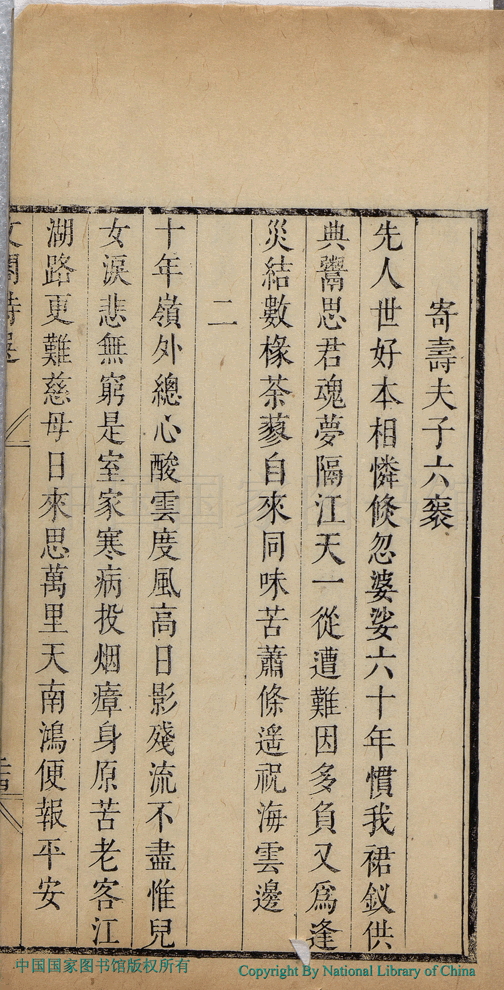 寄壽夫子六袠
先人世好本相憐倐忽婆娑六十年慣我裙釵供
典鬻思君魂夢隔江天一從遭難因多負又爲逢
災結數椽荼蓼自來同味苦蕭條遙祝海雲邊
二
十年嶺外總心酸雲度風高日影殘流不盡惟兒
女淚悲無窮是室家寒病投烟瘴身原苦老客江
湖路更難慈母日來思萬里天南鴻便報平安
中国国家图书馆版权所有
Copyright By National Library of China